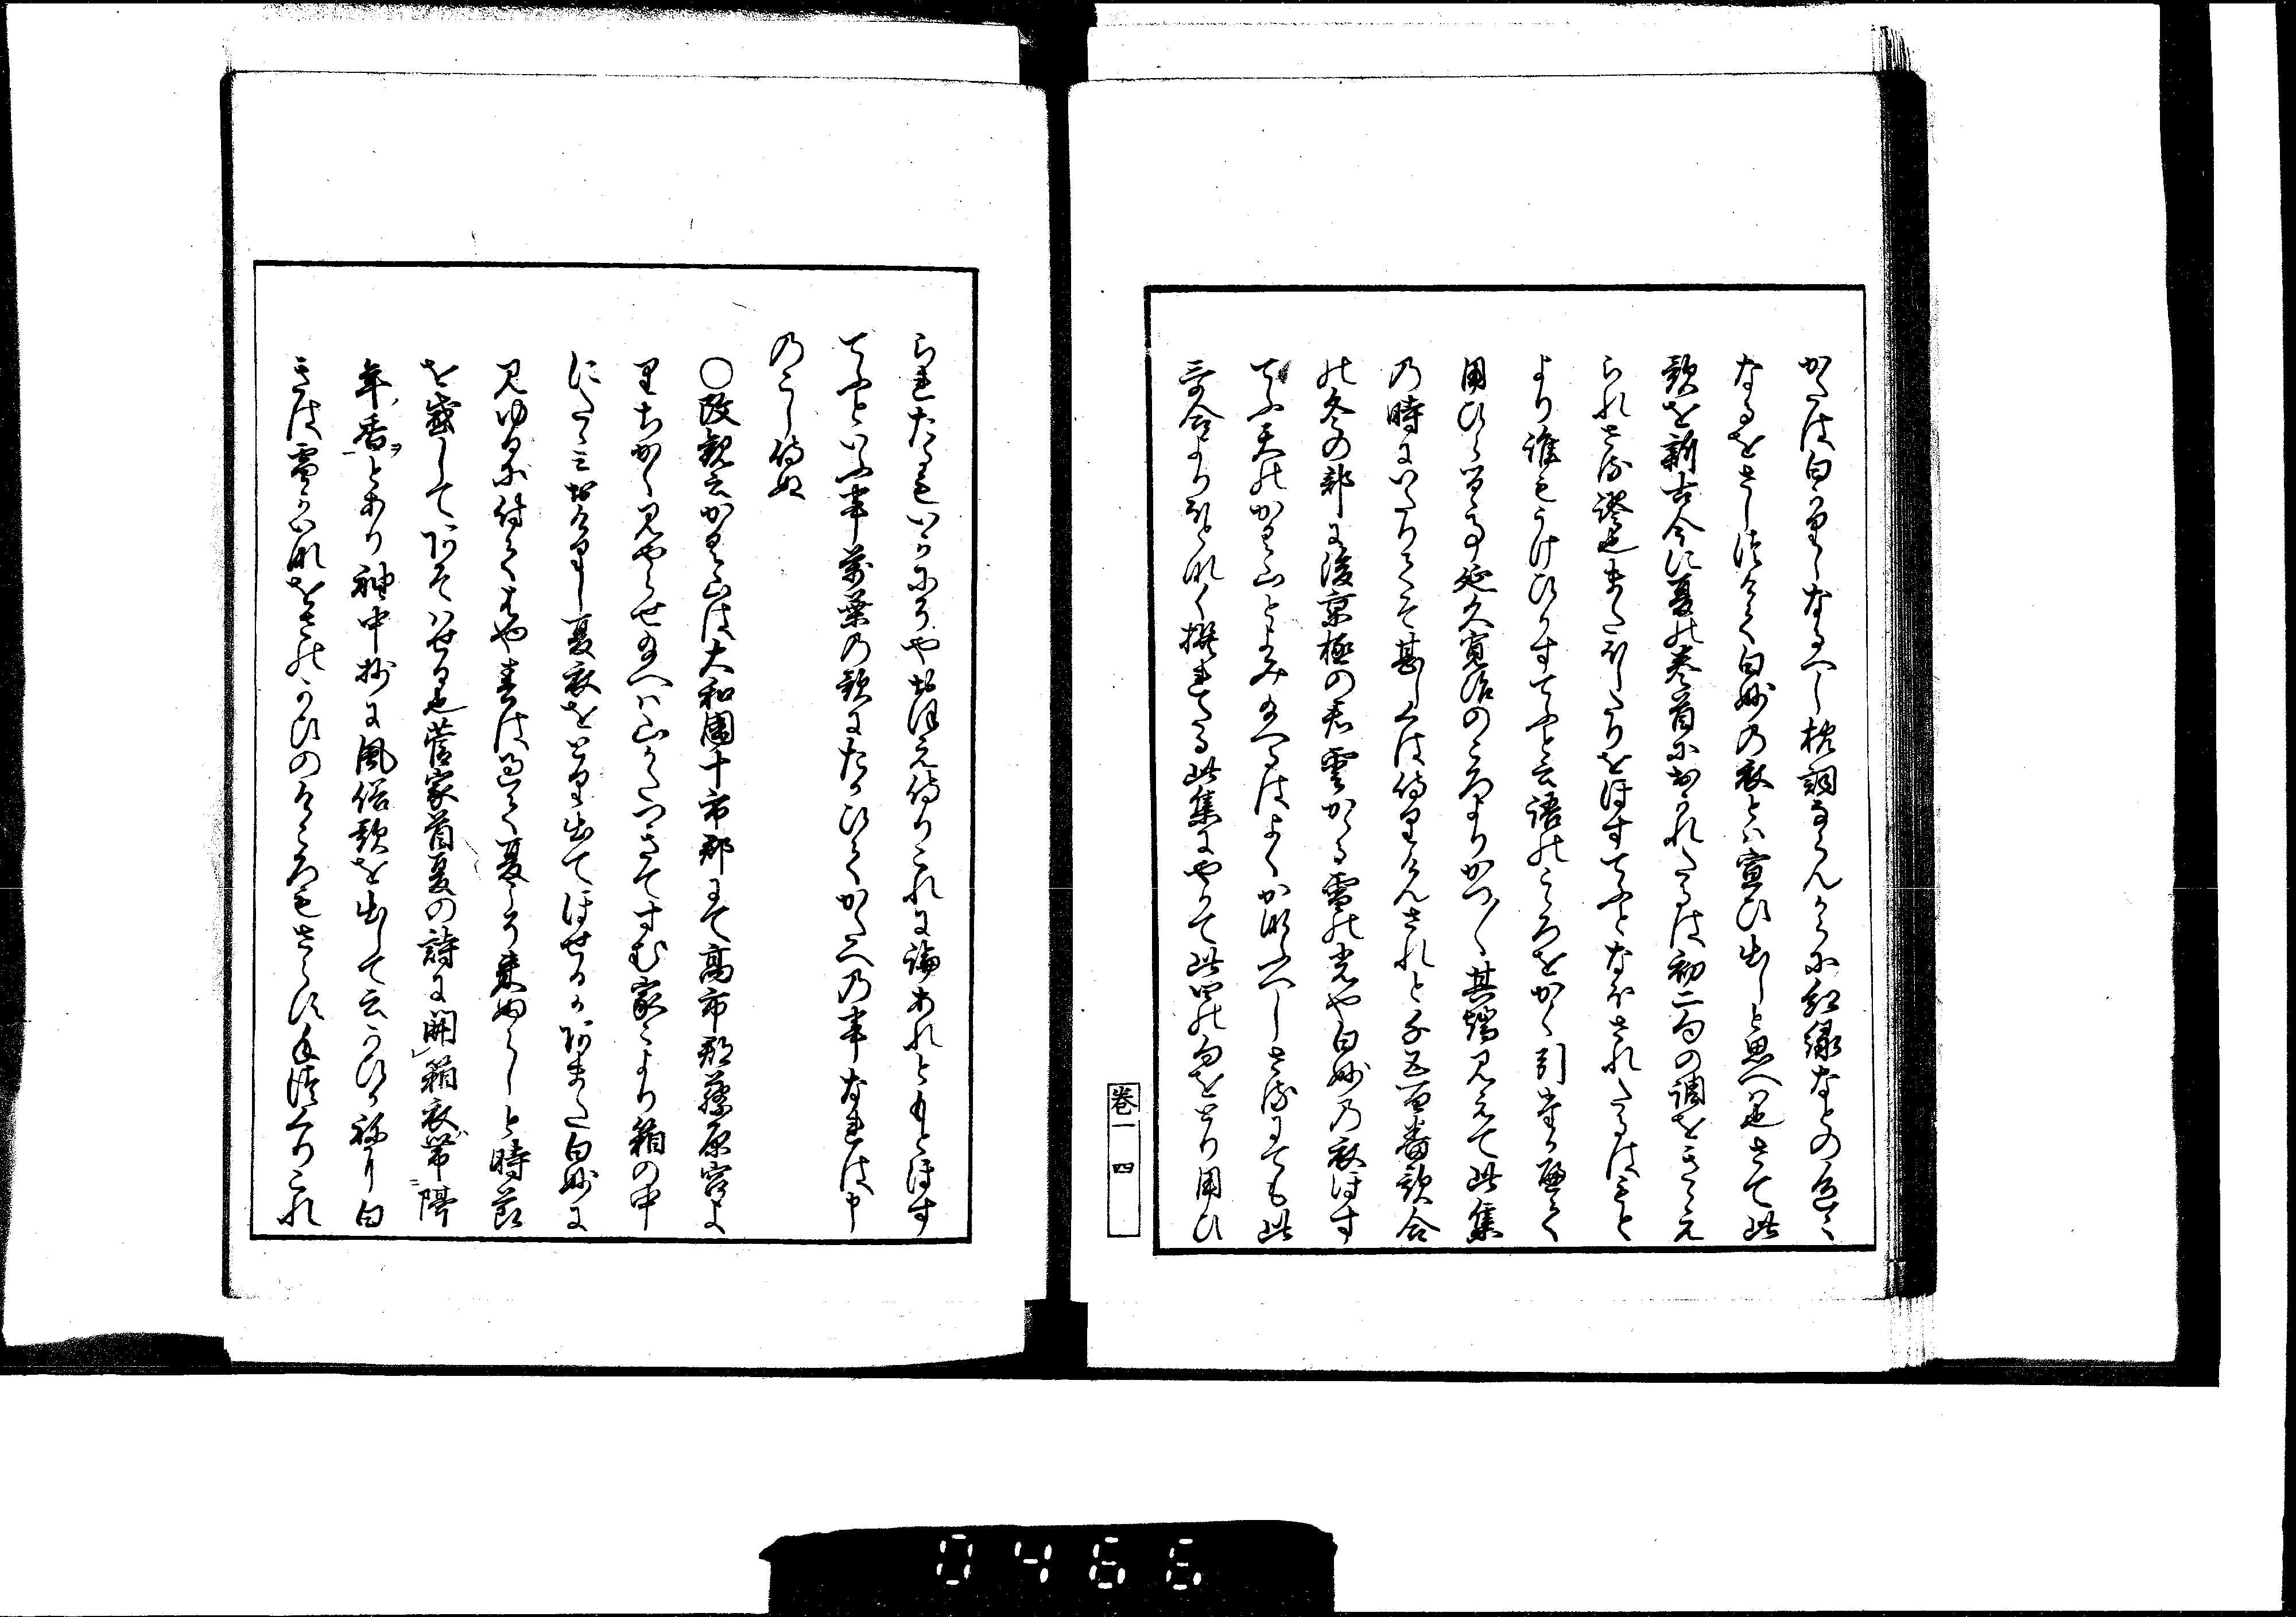 かたは白かるへくなるへし枕詞ならんからに紅緑なとの色に
なるをさしおきて白妙の衣とは宣ひ出しと思へる也さて此
歌を新古今に夏の巻首に出されたるは初二句の調をきこえ
られさる證也またほしたりをほすてふとなほされたるはもと
より誰もうけひかすてふと云語のこゝろをかく引当る
用ひ 延久寛治のころよりかつ〳〵其端見えて此集
の時にいたりてそ甚しくは侍りけんされと千五百番歌合
の冬の部に後京極の君雲かゝる雪の光や白妙の衣ほす
てふ天のかく山とよみ給へるはよくかなふへしさるにても此
哥合より 撰れたる此集にやかて此四の句をとり用ひ
巻一 四
られたるいかにそやおほえ侍りこれに論あれともとほす
てふといふ事萬葉の歌にたかひてかたへの事なれは
のこし侍ぬ
○改観云かく山は大和国十市郡にて高市郡藤原宮よ
りちかく見やらせ給へは山かたつきてすむ家〻より箱の中
に 夏衣をとり出てほせるかあまた白妙に
見ゆるに付てはや春は過て夏こそ来ぬらしと時節
を感してあそはせる也菅家首夏の詩に開箱衣帯隔
年香とあり袖中抄に風俗歌を出して云かひかねに白
きは雪かいなをさのかひのけころもさらす手つくりこれ
0466